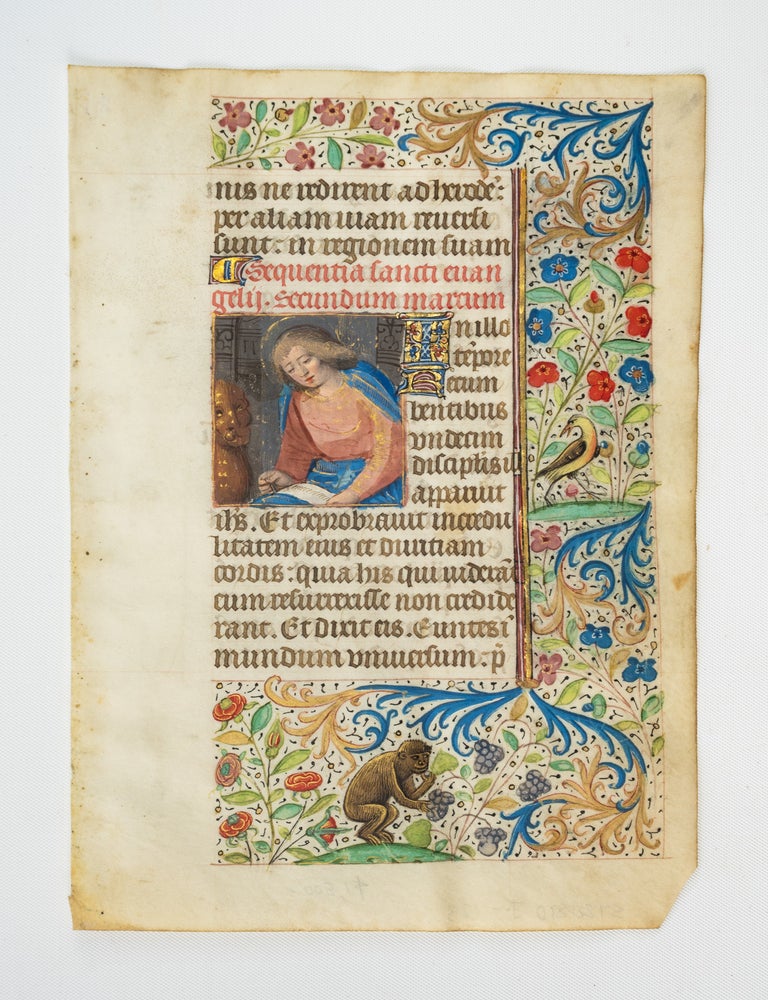 nis ne redirent ad herodē:
per aliam uiam reuersi
sunt: in regionem suam
Sequentia sancti euan
gelij. Secundum marcum
In illo
tēpore
recum
bentibus
vndecim
discipulis ill
apparuit
ihs. Et exprobrauit incredu
litatem eius et duritiam
cordis: quia his qui uiderāt
eum resurrexisse non credide
rant. Et dixit eis. Euntes ī
mundum vniuersum. p̄